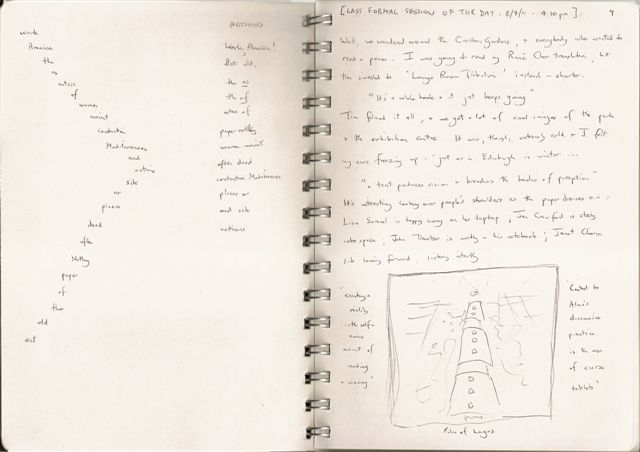 work
America
the
as
actors
of
women
contraction
Mediterranean
and
actions
site
or
places
dead
after
Nothing
paper
of
the
old
act
ACTIONS
Work, America!
Act old,
the as
the of
actors of
paper nothing
after dead
contraction Mediterranean
places or
and site
actions
[LAST FORMAL SESSION OF THE DAY: 8/7/11 - 4.30pm]: 9
Well, we wandered around the Carlton Gardens, & everybody who wanted to
read a poem. I was going to read my René Char translation, but
then switched to 'Lounge Room Tribalism' instead – shorter.
"It's a whole book & it just keeps going"
Tim filmed it all, & we got a lot of cool images of the park
& the exhibition centre. It was, though, extremely cold & I felt
my ears freezing up: just as in Edinburgh in winter ...
"a text produces vision & broadens the bandes of perception"
It's interesting looking over people's shoulders as the paper drones on:
Lisa Samuels is tapping away on her laptop; Jen Crawford is staring
into space; John Tranter is writing in his notebook; Janet Charman
sits leaning forward, listening intently.
"creating a
reality
.. the self-
same
moment of
reading
& viewing"
"Central to
Alan's
discursive
practice
is the use
of curse
tablets"
Film of Lagos